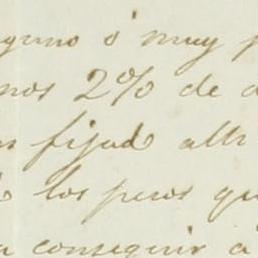 guno ó muy p
nos 2% de d
s fijad alli
los pesos qu
a conseguir a